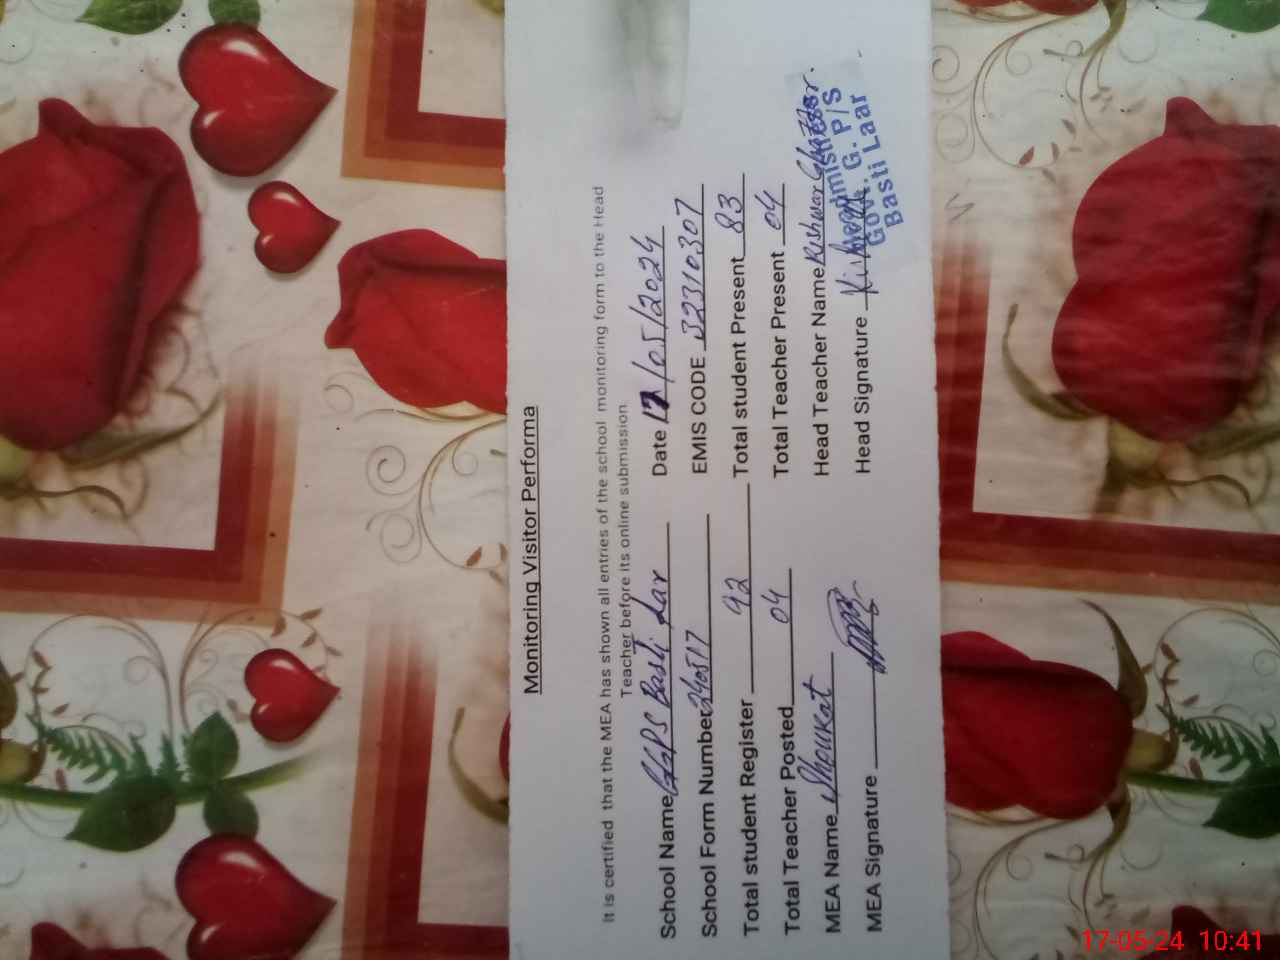 Monitoring Visitor Performa
It is certified that the MEA has shown all entries of the school monitoring form to the Head
Teacher before its online submission
School Name GGPS Basti Lar Date 17/05/2024
School Form Number 240517 EMIS CODE 32310307
Total student Register 92 Total student Present 83
Total Teacher Posted 04 Total Teacher Present 04
MEA Name Shoukat Head Teacher Name Kishwar
MEA Signature Head Signature
Govt. G. P/S
Basti Laar
17-05-24 10:41